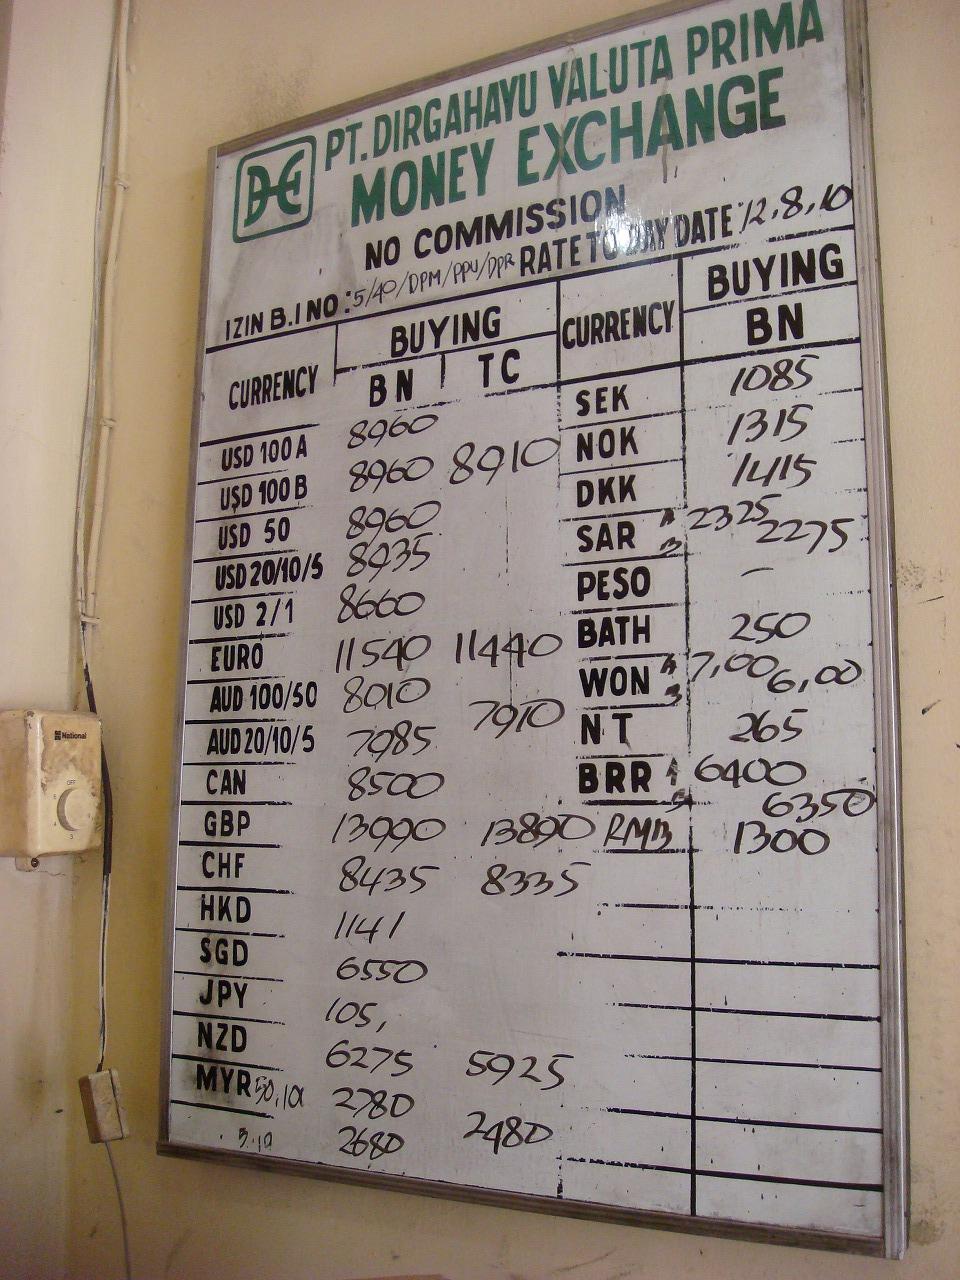 DHE
PT. DIRGAHAYU VALUTA PRIMA
MONEY EXCHANGE
NO COMMISSION
IZIN B.I NO : 5/40/DPM/PPU/DPR RATE TO DAY DATE : 12,8,10
CURRENCY BUYING CURRENCY BUYING
BN TC BN
USD 100 A 8960
USD 100 B 8960 8910
USD 50 8960
USD 20/10/5 8935
USD 2/1 8660
EURO 11540 11440
AUD 100/50 8010
AUD 20/10/5 7985 7910
CAN 8500
GBP 13990 13890
CHF 8435 8335
HKD 1141
SGD 6550
JPY 105,
NZD 6275 5925
MYR 50,100 2780
5.10 2680 2480
SEK 1085
NOK 1315
DKK 1415
SAR A 2325
B 2275
PESO –
BATH 250
WON A 7,00
B 6,00
NT 265
BRR A 6400
B 6350
RMB 1300
National
OFF